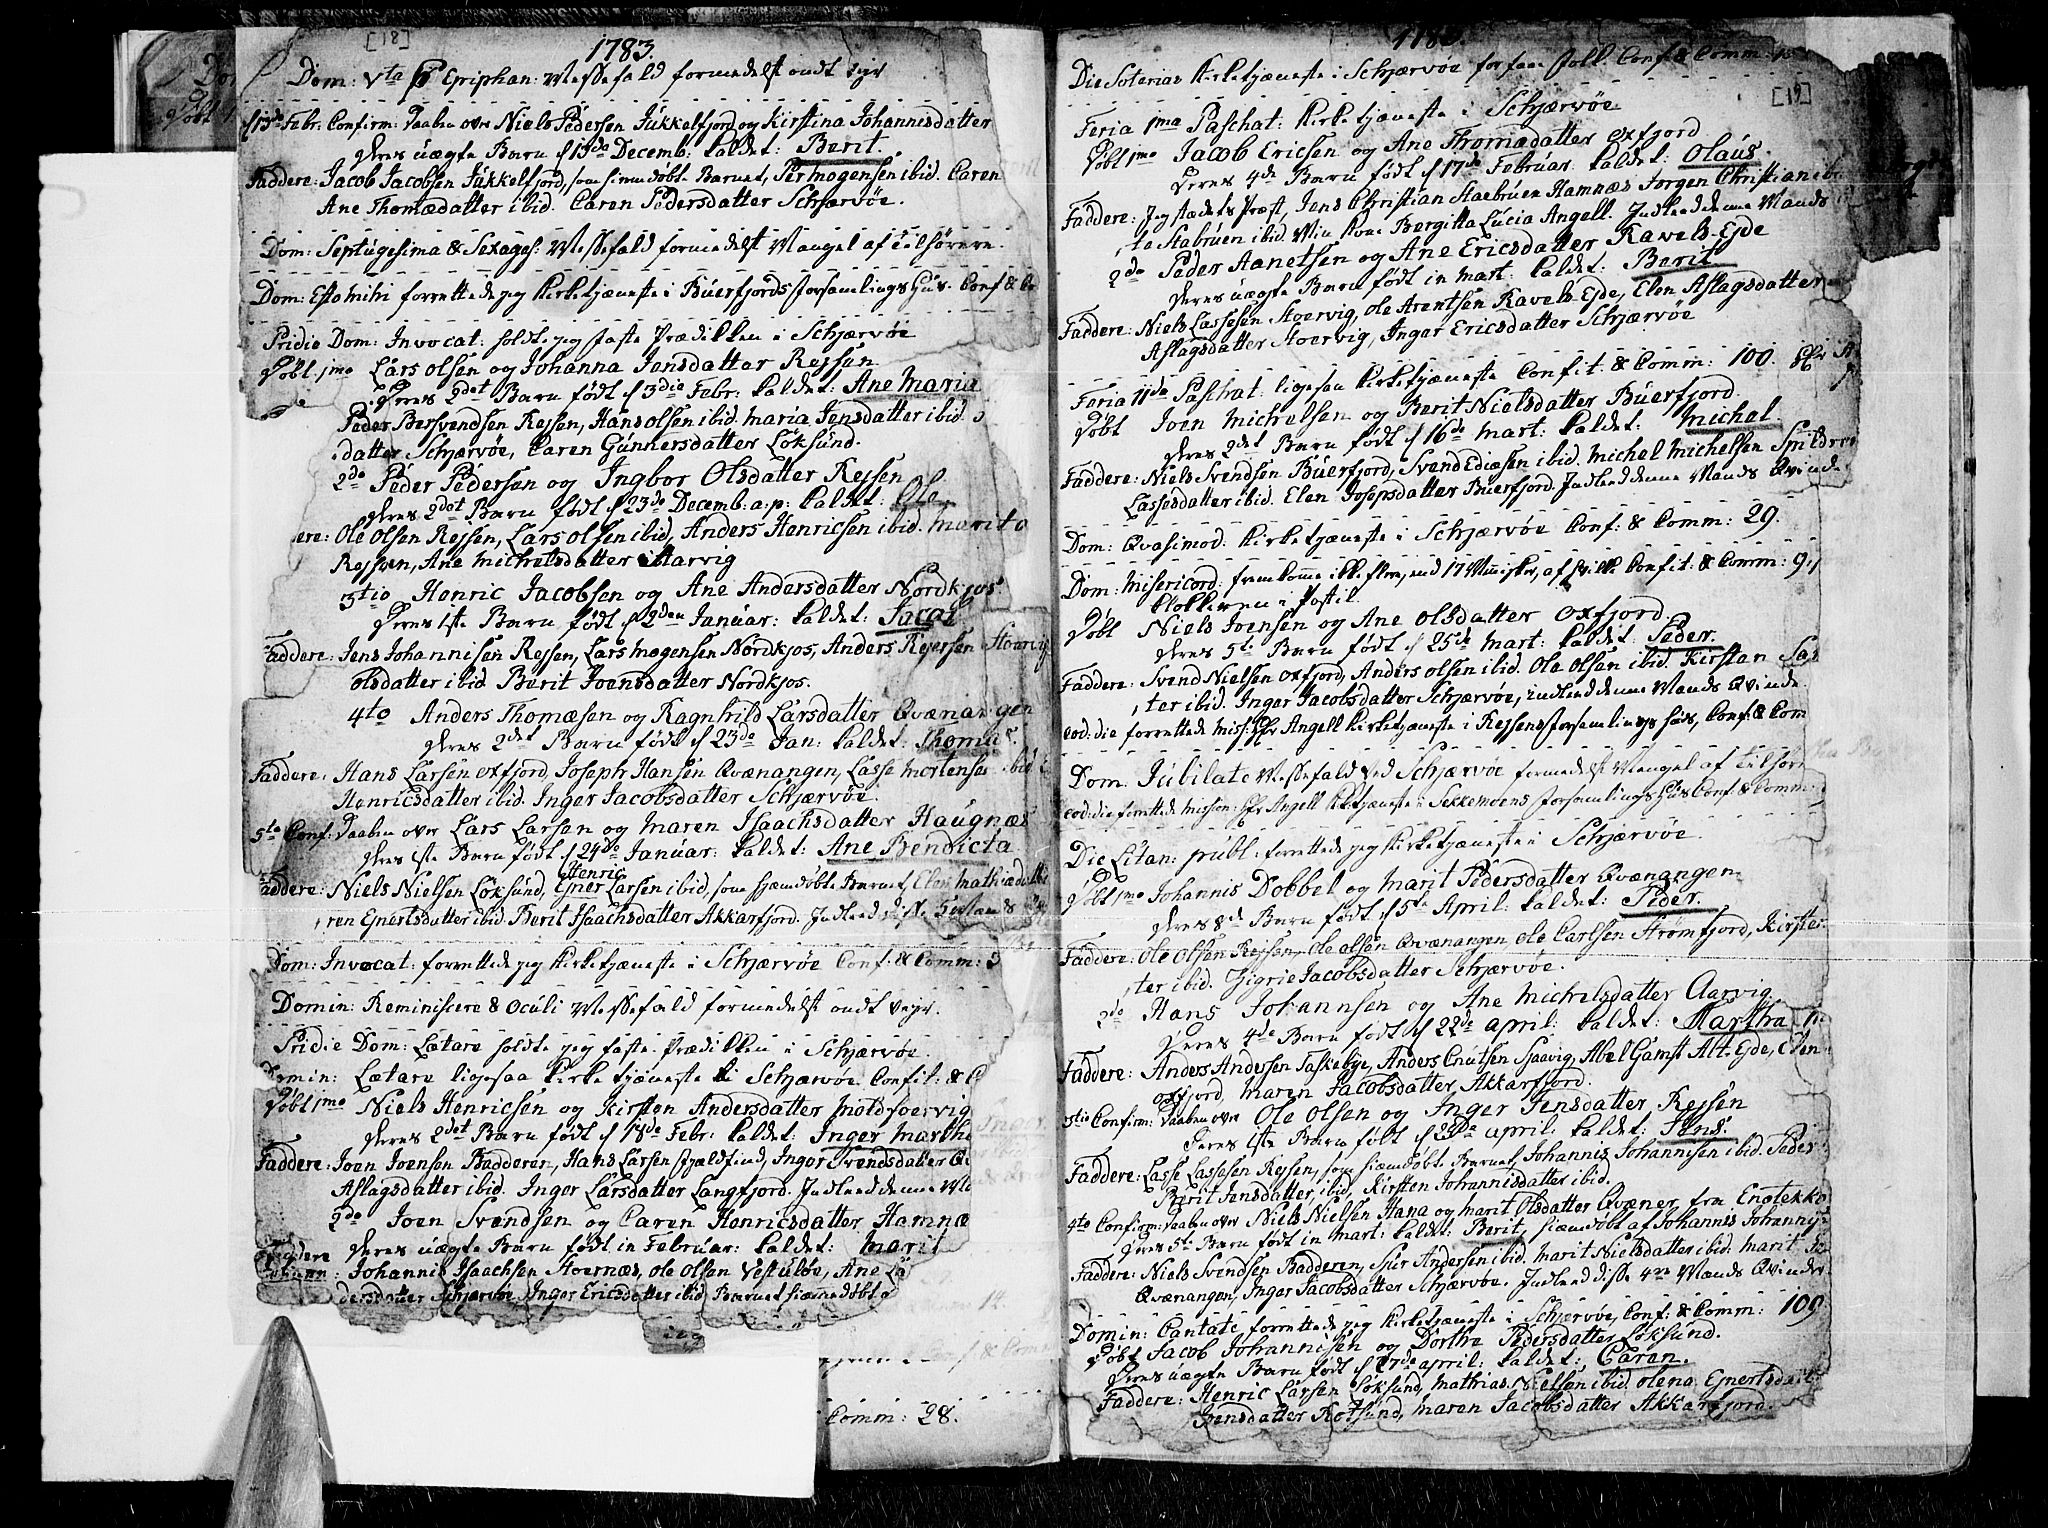 [18]
1783.
Dom: Vta p Epiphan: Messefald formedelst ondt vejr
d 13de Febr: Confirm: Daaben over Niels Pedersen Jükkelfjord og Kirstina Johannisdatter
Deres uægte Barn d 15de Decemb: kaldet: Berit.
Faddere: Jacob Jacobsen Jükkelfjord, som hiemdøbt Barnet, Per Mogensen ibid. Caren
Ane Thomædatter ibid. Caren Pedersdatter Schjærvøe.
Dom: Septugesima & Sexages: Messefald formedelst Mangel af Tilhørere.
Dom: Esto mihi forrettede jeg Kirketjæneste i Büerfjords forsamlings Hüs. Conf: &
Pridie Dom: Invocat: holdte jeg faste Prædikken i Schjærvøe
Døbt 1mo Lars Olsen og Johanna Jensdatter Rejsen
Deres 2det Barn født d 3die Febr: kaldet: Ane Maria
Peder Bersvendsen Rejsen, Hans Olsen ibid. Maria Jensdatter ibid.
datter Schjærvøe, Caren Günnersdatter Løksünd.
2do Peder Pedersen og Ingbor Olsdatter Rejsen
Deres 2det Barn født d 23de Decemb: a.p: kaldet: Ole
ere: Ole Olsen Rejsen, Lars Olsen ibid, Anders Henricsen ibid. Marit O
Rejsen, Ane Michelsdatter Maarvig
3tio Henric Jacobsen og Ane Andersdatter Nordkjos.
Deres 1ste Barn født d 2den Januar: kaldet: Jacob
Faddere: Jens Johannisen Rejsen, Lars Mogensen Nordkjos, Anders Rejersen Stoervig
Olsdatter ibid Berit Joensdatter Nordkjos.
4to Anders Thomæsen og Ragnhild Larsdatter Qvænangen
Deres 2det Barn født d 23de Jan: kaldet: Thomas.
Faddere: Hans Larsen Oxfjord, Joseph Hansen Qvænangen, Lasse Mortensen ibid
Henricsdatter ibid. Inger Jacobsdatter Schjærvøe.
5to Conf: Daaben over Lars Larsen og Maren Isaachsdatter Haugnæs
Deres 1ste Barn født d 24de Januar: kaldet: Ane Bendicta
Henric
Faddere: Niels Nielsen Løksünd, Ejner Larsen ibid, som hjemdøbte Barnet, Elen Mathiædatter
ren Ejnertsdatter ibid. Berit Isaachsdatter Akkarfjord. Indleed disse 5 Mænds
Dom: Invocat: forrettede jeg Kirketjæneste i Schjærvøe Conf: & Comm: 3
Domin: Reminiscere & Oculi Messefald formedelst ondt vejr.
Pridie Dom: Lætare holdte jeg faste Prædikken i Schjærvøe.
Domin: Lætare ligesaa Kirketjæneste i Schjærvøe Confit: & C
Døbt 1mo Niels Henricsen og Kirsten Andersdatter Molds Joervig
Deres 2det Barn født d 18de Febr: kaldet: Inger Marthe
Faddere: Joen Joensen Badderen, Hans Larsen Hjaldfind, Inger Svendsdatter
Aslagsdatter ibid. Inger Larsdatter Langfjord. Indleed denne
2do Joen Svendsen og Caren Henricsdatter Hamnæ
Deres uægte Barn født in Februar: kaldet: Marit
Faddere: Johannis Isaachsen Stoernæs, Ole Olsen Vestuløe, Ane
dersdatter Schjærvøe, Inger Ericsdatter ibid Barnet hiemedøbt
14.
& Comm
Comm: 28.
1783.
Die Soterias Kirketjæneste i Schjærvøe for faae Folk Conf: & Comm:
[19]
Feria 1ma Paschat: Kirketjæneste i Schjærvøe
Døbt 1mo Jacob Ericsen og Ane Thomædatter Oxfjord
Deres 4de Barn født d 17de Februar kaldet: Olaus.
Faddere: Jeg stædets Præst, Jens Christian Stabrüen Hamnæs Jørgen Christian
te Stabrüen ibid. Min Kone Bergitta Lücia Angell. Indleed denne Mands
2do Peder Aanetsen og Ane Ericsdatter Ravels-Ejde
Deres uægte Barn født in Mart: kaldet: Berit
Faddere: Niels Lassesen Stoervig, Ole Arentsen Ravels-Ejde, Elen Aslagsdatter
Aslagsdatter Stoervig, Inger Ericsdatter Schjærvøe
Feria IIda Paschat: ligesaa Kirketjæneste Confit: & Comm: 100.
Døbt Joen Michelsen og Berit Nielsdatter Büerfjord.
Deres 2det Barn født d 16de Mart: kaldet: Michel
Faddere: Niels Svendsen Büerfjord, Svend Ediæsen ibid. Michel Michelsen
Lassesdatter ibid. Elen Josepsdatter Büerfjord. Indleed denne Mands Qvinde
Dom: Qvasimod: Kirketjæneste i Schjærvøe Conf: & Comm: 29.
Dom: Misericord: fremkomne ikke flere, end 17 Mennisker, af hvilke Confit: & Comm: 9,
Klokkeren i Postil
Døbt Niels Joensen og Ane Olsdatter Oxfjord
Deres 5te Barn født d 25de Mart: kaldet: Peder.
Faddere: Svend Nielsen Oxfjord, Anders Olsen ibid. Ole Olsen ibid. Kirsten
ter ibid. Inger Jacobsdatter Schjærvøe, indleed denne Mands Qvinde.
eod: die forrettede Miss: Hr Angell Kirketjæneste i Rejsens forsamlings hüs, Conf: & Com
Dom: Jubilate Messefald ved Schjærvøe formedelst Mangel af Tilhør
eod: die forrettede Mission: Hr Angell Kirketjæneste i Sekkemoens forsamlings Hüs Conf: & Comm:
Die Litan: publ: forrettede jeg Kirketjæneste i Schjærvøe
Døbt 1mo Johannis Dobbel og Marit Pedersdatter Qvænangen
Deres 8de Barn født d 5te April: kaldet: Peder.
Faddere: Ole Olsen Rejsen, Ole Olsen Qvænangen, Ole Carlsen Strømfjord, Kirsten
ter ibid. Zigrie Jacobsdatter Schjærvøe.
2do Hans Johannsen og Ane Michelsdatter Aarvig
Deres 4de Barn født d 22de April: kaldet: Martha
Faddere: Anders Andersen Taskebye, Anders Cnutsen Spaavig, Abel Gamst Alt-Ejde, Elen
Oxfjord, Maren Jacobsdatter Akkarfjord.
3tio Confirm: Daaben over Ole Olsen og Inger Jensdatter Rejsen
Deres 1ste Barn født d 23de April: kaldet: Jens.
Faddere: Lasse Lassesen Rejsen, som hiemdøbt Barnet, Johannis Johannisen ibid. Peder
Berit Jensdatter, ibid, Kirsten Johannisdatter ibid.
4to Confirm: Daaben over Niels Nielsen Hana og Marit Olsdatter Qvæner, fra Enotekki
Deres 5te Barn født in Mart: kaldet: Berit, hiemdøbt af Johannis Johannis
Faddere: Niels Svendsen Badderen, Siur Andersen ibid. Marit Nielsdatter ibid: Marit
Qvænangen, Inger Jacobsdatter Schjærvøe. Indleed disse 4re Mænds Qvinder
Domin: Cantate forrettede jeg Kirketjæneste i Schjærvøe, Conf: & Comm: 109.
Døbt Jacob Johannisen og Dorthe Pedersdatter Løksünd.
Deres uægte Barn født d 17de April: kaldet: Caren.
Faddere: Henric Larsen Løksünd, Mathias Nielsen ibid. Olena Ejnertsdatt
Joensdatter Rotsünd, Maren Jacobsdatter Akkarfjord.